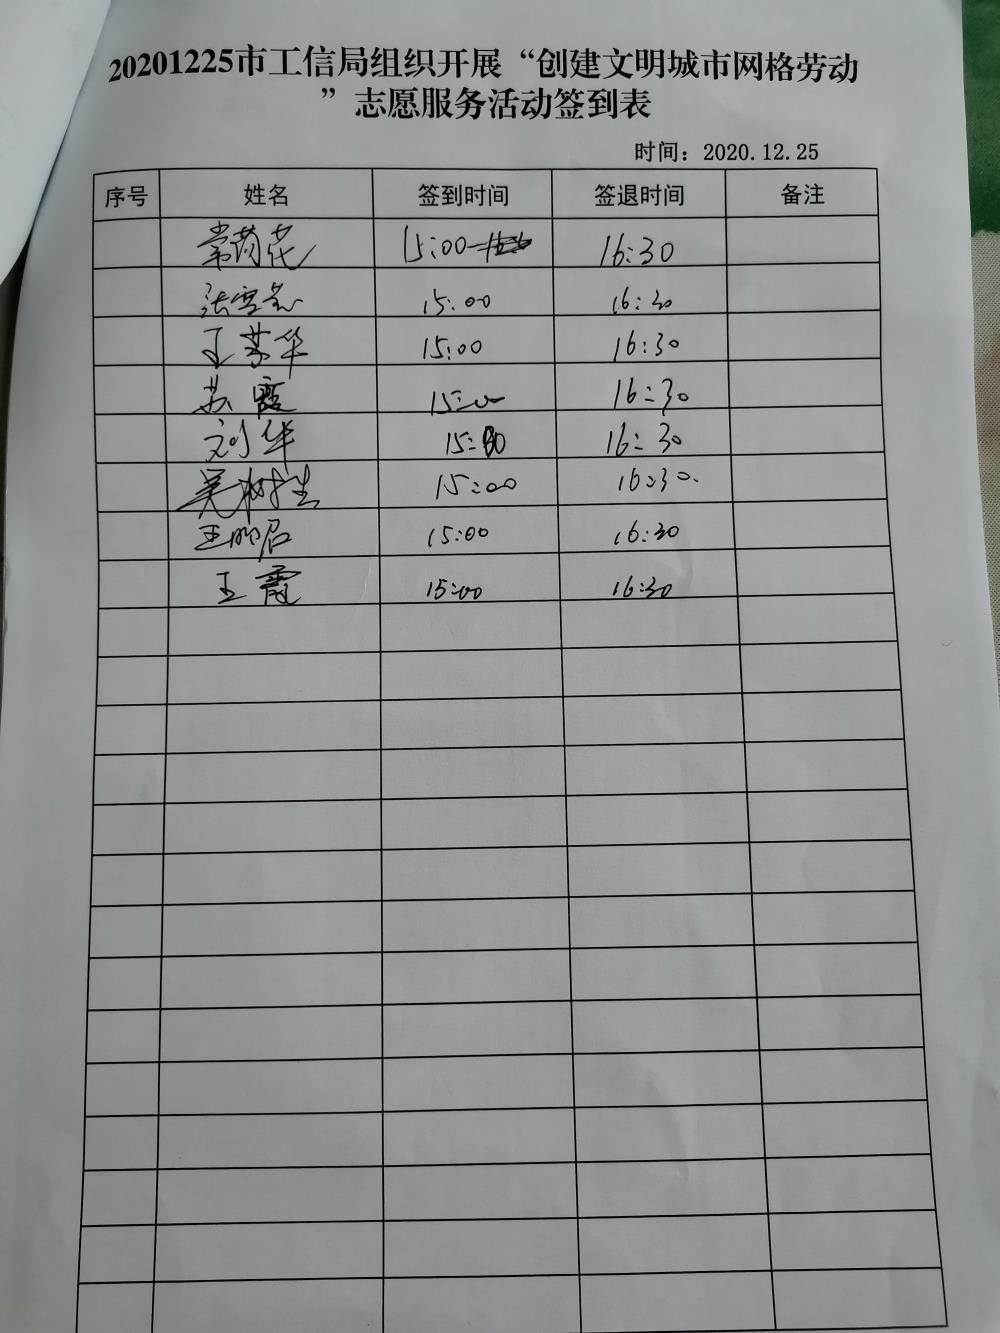 20201225市工信局组织开展“创建文明城市网格劳动
”志愿服务活动签到表
时间：2020.12.25
序号 姓名 签到时间 签退时间 备注
常菊花 15:00 16:30
15:00 16:30
王苏华 15:00 16:30
苏霞 15:00 16:30
刘华 15:00 16:30
吴树生 15:00 16:30.
王 15:00 16:30
王霞 15:00 16:30